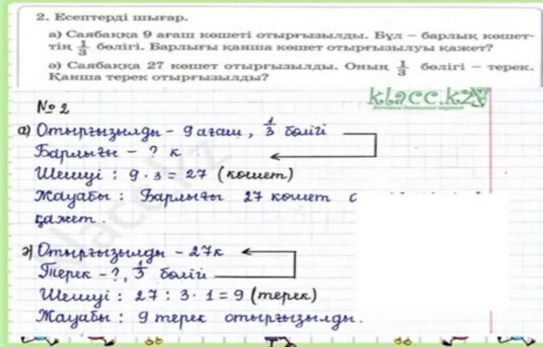 2. Есептерді шығар.
а) Саябаққа 9 ағаш көшеті отырғызылды. Бұл – барлық көшет-
тің 1/3 бөлігі. Барлығы қанша көшет отырғызылуы қажет?
ә) Саябаққа 27 көшет отырғызылды. Оның 1/3 бөлігі – терек.
Қанша терек отырғызылды?
klacc.kz
№ 2
а) Отырғызылды – 9 ағаш, 1/3 бөлігі
Барлығы – ? к
Шешуі : 9 · 3 = 27 (көшет)
Жауабы : Барлығы 27 көшет
қажет.
ә) Отырғызылды – 27к
Терек – ?, 1/3 бөлігі
Шешуі : 27 : 3 · 1 = 9 (терек)
Жауабы : 9 терек отырғызылды.